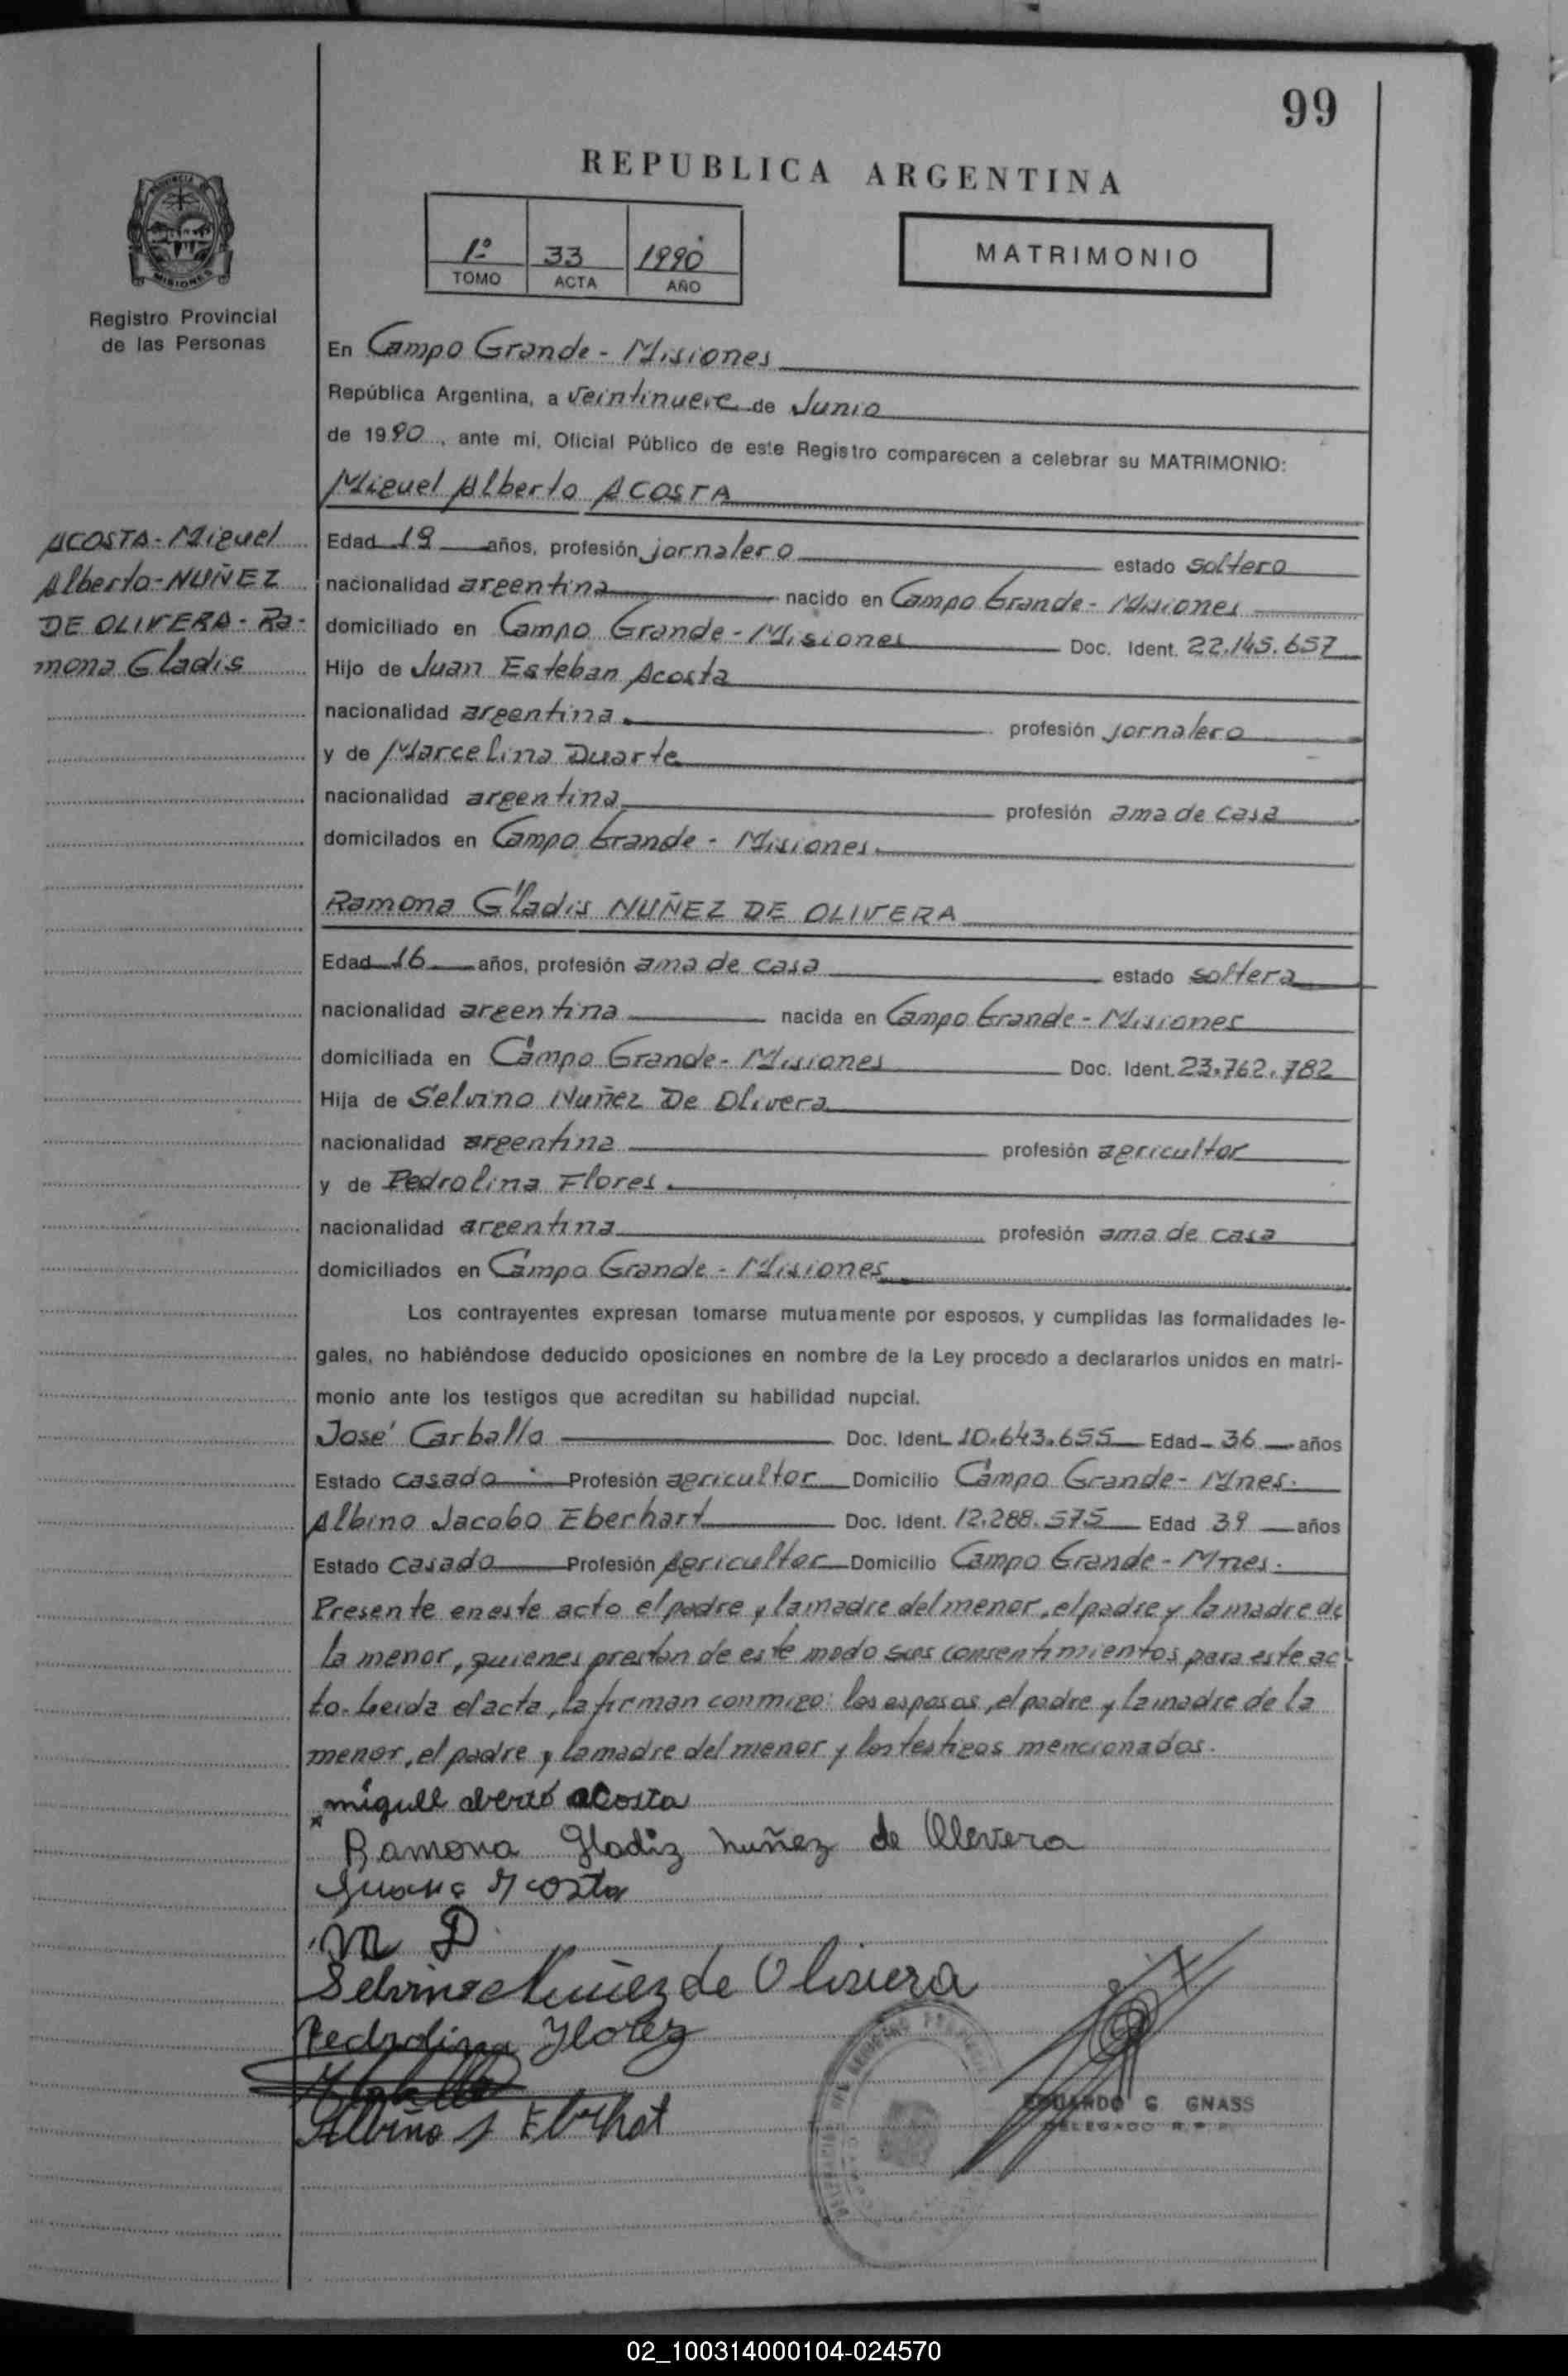 99
REPUBLICA ARGENTINA
1º 33 1990
TOMO ACTA AÑO
MATRIMONIO
PROVINCIA DE
MISIONES
Registro Provincial
de las Personas
ACOSTA - Miguel
Alberto - NUÑEZ
DE OLIVERA - Ra-
mona Gladis
En Campo Grande - Misiones
República Argentina, a veintinueve de Junio
de 1990, ante mi, Oficial Público de este Registro comparecen a celebrar su MATRIMONIO:
Miguel Alberto ACOSTA
Edad 19 años, profesión jornalero estado soltero
nacionalidad argentina nacido en Campo Grande - Misiones
domiciliado en Campo Grande - Misiones Doc. Ident. 22.145.657
Hijo de Juan Esteban Acosta
nacionalidad argentina. profesión jornalero
y de Marcelina Duarte
nacionalidad argentina profesión ama de casa
domicilados en Campo Grande - Misiones.
Ramona Gladis NUÑEZ DE OLIVERA
Edad 16 años, profesión ama de casa estado soltera
nacionalidad argentina nacida en Campo Grande - Misiones
domiciliada en Campo Grande - Misiones Doc. Ident. 23.762.782
Hija de Selvino Nuñez De Olivera
nacionalidad argentina profesión agricultor
y de Pedrolina Flores.
nacionalidad argentina profesión ama de casa
domiciliados en Campo Grande - Misiones
Los contrayentes expresan tomarse mutuamente por esposos, y cumplidas las formalidades le-
gales, no habiéndose deducido oposiciones en nombre de la Ley procedo a declararlos unidos en matri-
monio ante los testigos que acreditan su habilidad nupcial.
José Carballo Doc. Ident. 10.643.655 Edad 36 años
Estado casado Profesión agricultor Domicilio Campo Grande - Mnes.
Albino Jacobo Eberhart Doc. Ident. 12.288.575 Edad 39 años
Estado casado Profesión Agricultor Domicilio Campo Grande - Mnes.
Presente en este acto el padre y la madre del menor, el padre y la madre de
la menor, quienes prestan de este modo sus consentimientos para este ac
to. Leida el acta, la firman conmigo: los esposos, el padre y la madre de la
menor, el padre y la madre del menor y los testigos mencionados.
migull aberto acosta
Ramona Gladiz nuñez de Olevera
Acosta
M D
Selvino Nuñez de Olivera
Pedrolina Florez
Albino J Eberhat
EDUARDO G. GNASS
DELEGADO R.P.P.
02_100314000104-024570